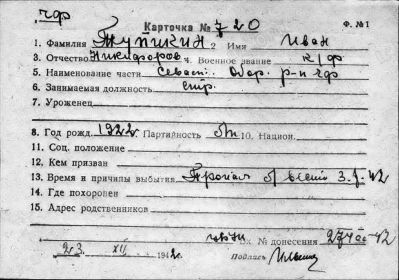 чф
Карточка № 720 Ф. №1
1. Фамилия Тупикин 2. Имя Иван
3. Отчество Никифоров 4. Военное звание к/ф
5. Наименование части Севаст. Обор. р-н чф
6. Занимаемая должность стр.
7. Уроженец
8. Год рожд. 1922 Партийность б/п 10. Национ.
11. Соц. положение
12. Кем призван
13. Время и причины выбытия Пропал б/вести 3.7-42
14. Где похоронен
15. Адрес родственников
№ донесения
23. XII 1942г. Подпись